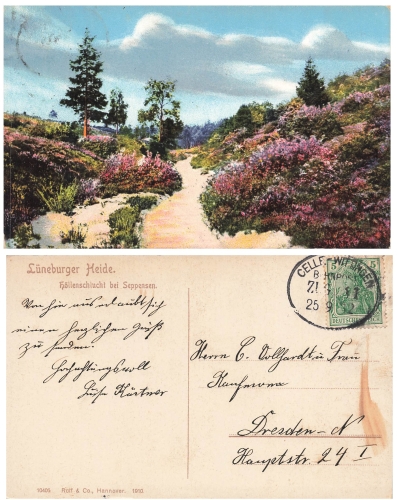 Lüneburger Heide.
Höllenschlucht bei Seppensen.
CELLE-WITTINGEN
BAHNPOST
25 9
5 5
DEUTSCHES
Von hier aus erlaubt sich
einen herzlichen Gruß
zu senden.
Hochachtungsvoll
Luise Küstner
Herrn C. Vollhardt u. Frau
Kaufmann
Dresden-N
Hauptstr. 24 I
10405 Rolf & Co., Hannover. 1910